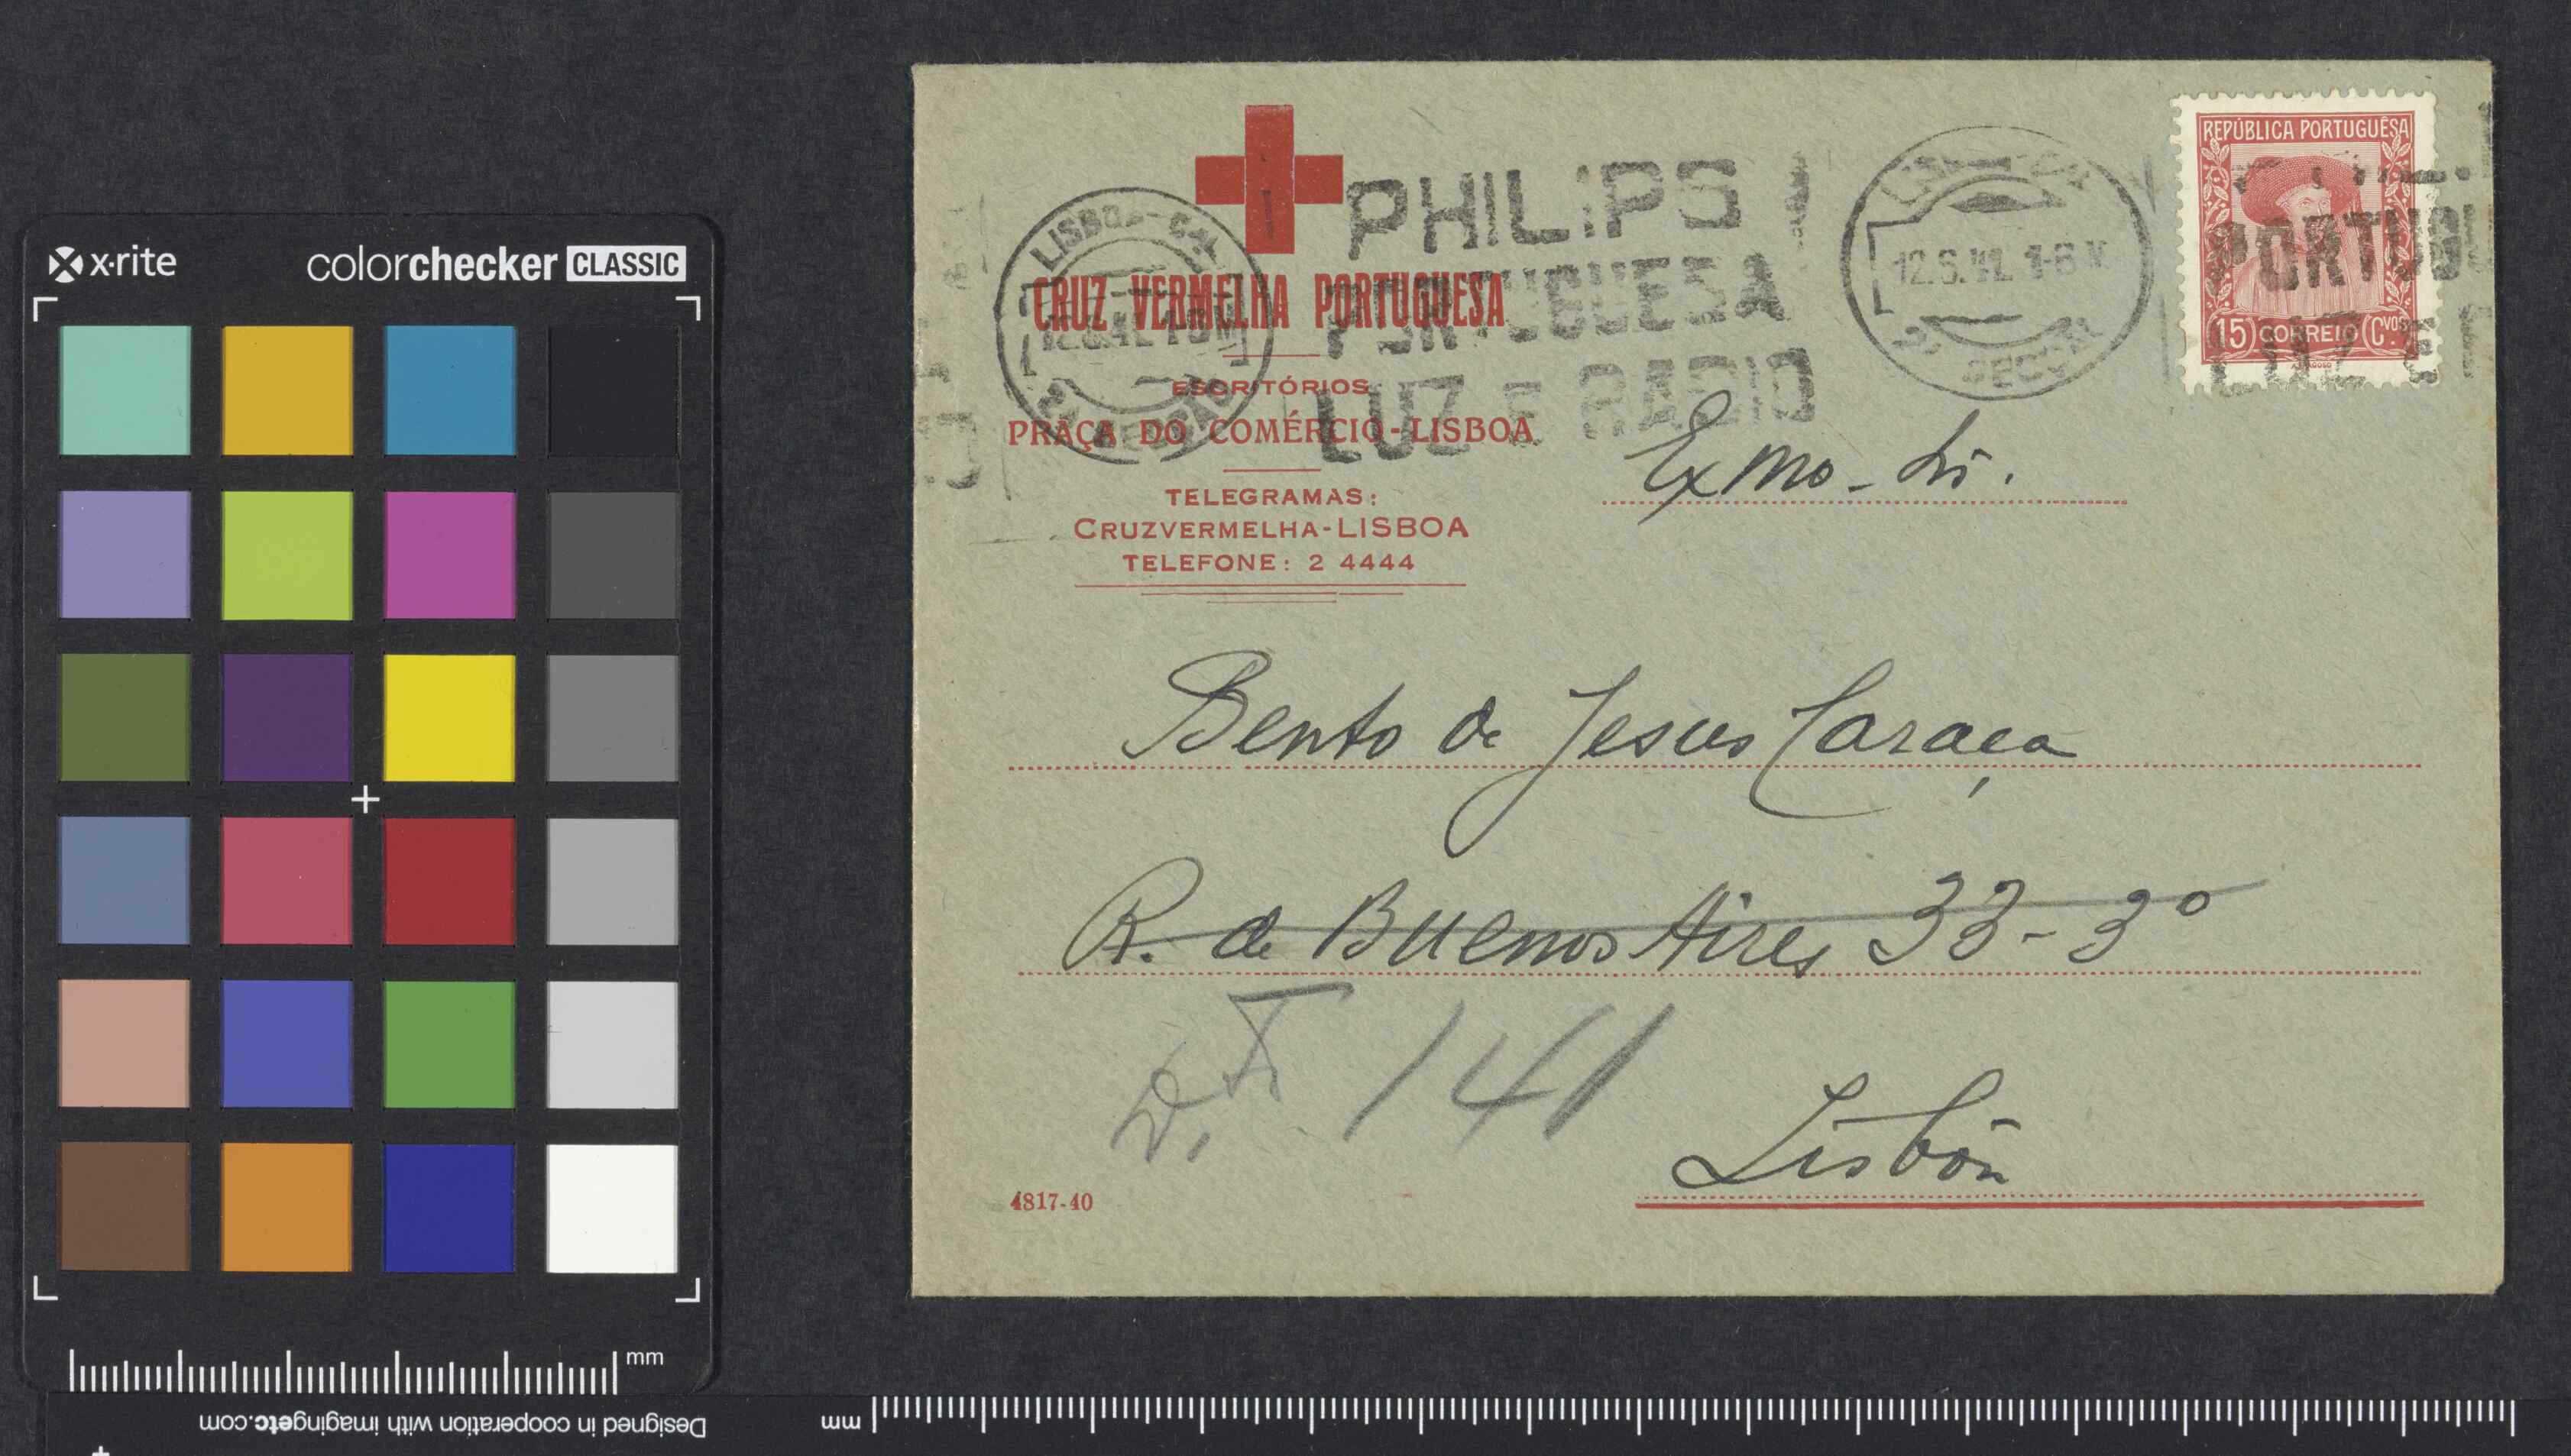 x·rite colorchecker CLASSIC
mm
Designed in cooperation with imagingetc.com
mm
CRUZ VERMELHA PORTUGUESA
ESCRITÓRIOS
PRAÇA DO COMÉRCIO-LISBOA
TELEGRAMAS:
CRUZVERMELHA-LISBOA
TELEFONE: 2 4444
PHILIPS
PORTUGUESA
LUZ E RADIO
LISBOA
2ª SECÇÃO
12.6.41. 1-6
SECÇÃO
REPÚBLICA PORTUGUÊSA
15 CORREIO Cvos
PORTUGU
LUZ E
Exmo - Sr.
Bento de Jesus Caraça
R. de Buenos Aires 33-3º
141
Lisbôa
4817-40